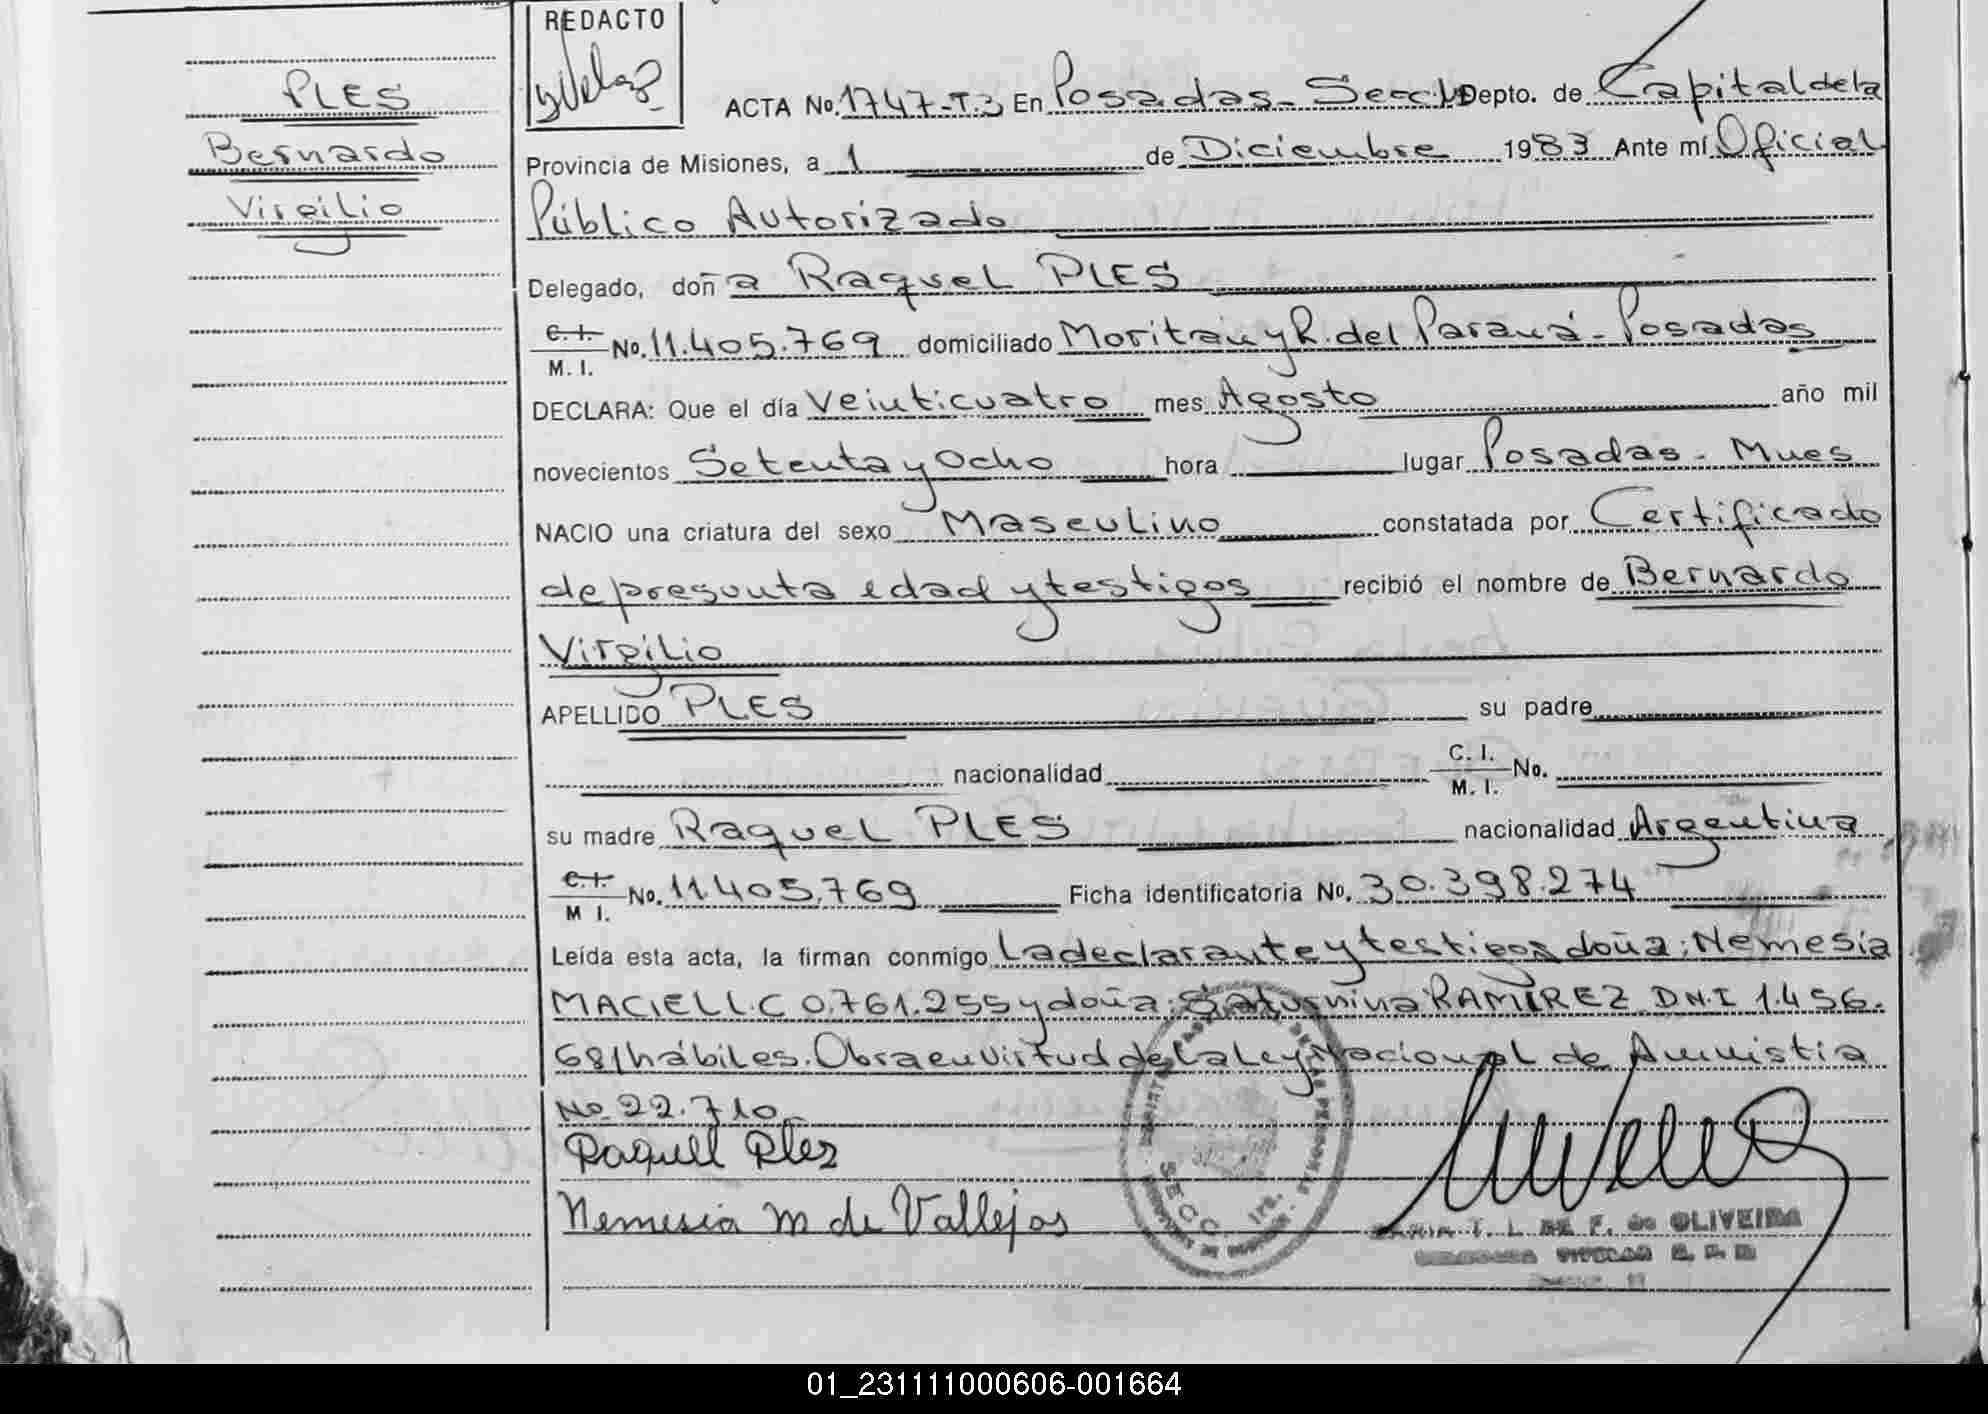 PLES
Bernardo
Virgilio
REDACTO
ACTA No. 1747-T.3 En Posadas - Secc. Depto. de Capital de la
Provincia de Misiones, a 1 de Diciembre 1983 Ante mí Oficial
Público Autorizado
Delegado, doñ a Raquel PLES
C.I. M. I. No. 11.405.769 domiciliado y R. del Paraná - Posadas
DECLARA: Que el día Veinticuatro mes Agosto año mil
novecientos Setenta y Ocho hora lugar Posadas - Mnes
NACIO una criatura del sexo Masculino constatada por Certificado
de presunta edad y testigos recibió el nombre de Bernardo
Virgilio
APELLIDO PLES su padre
nacionalidad C. I. M. I. No.
su madre Raquel PLES nacionalidad Argentina
C.I. M I. No. 11.405.769 Ficha identificatoria No. 30.398.274
Leída esta acta, la firman conmigo La declarante y testigos doña: Nemesia
MACIEL L.C 0.761.255 y doña: Saturnina RAMIREZ D.N.I 1.456.
681 hábiles. Obra en virtud de la Ley Nacional de Amnistia
No 22.710
Raquell Plez
Nemesia M de Vallejos
T. L. DE F. de OLIVEIRA
SECC.
01_231111000606-001664